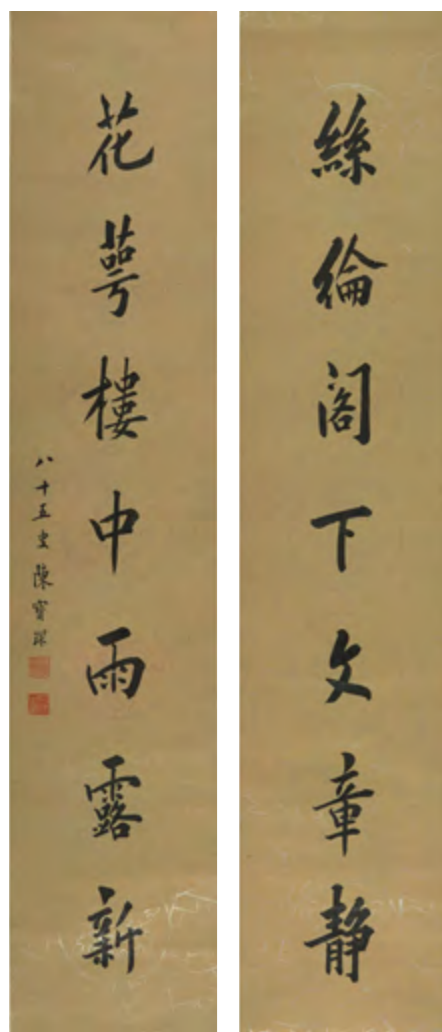 絲綸閣下文章靜
花萼樓中雨露新
八十五叟陳寶琛